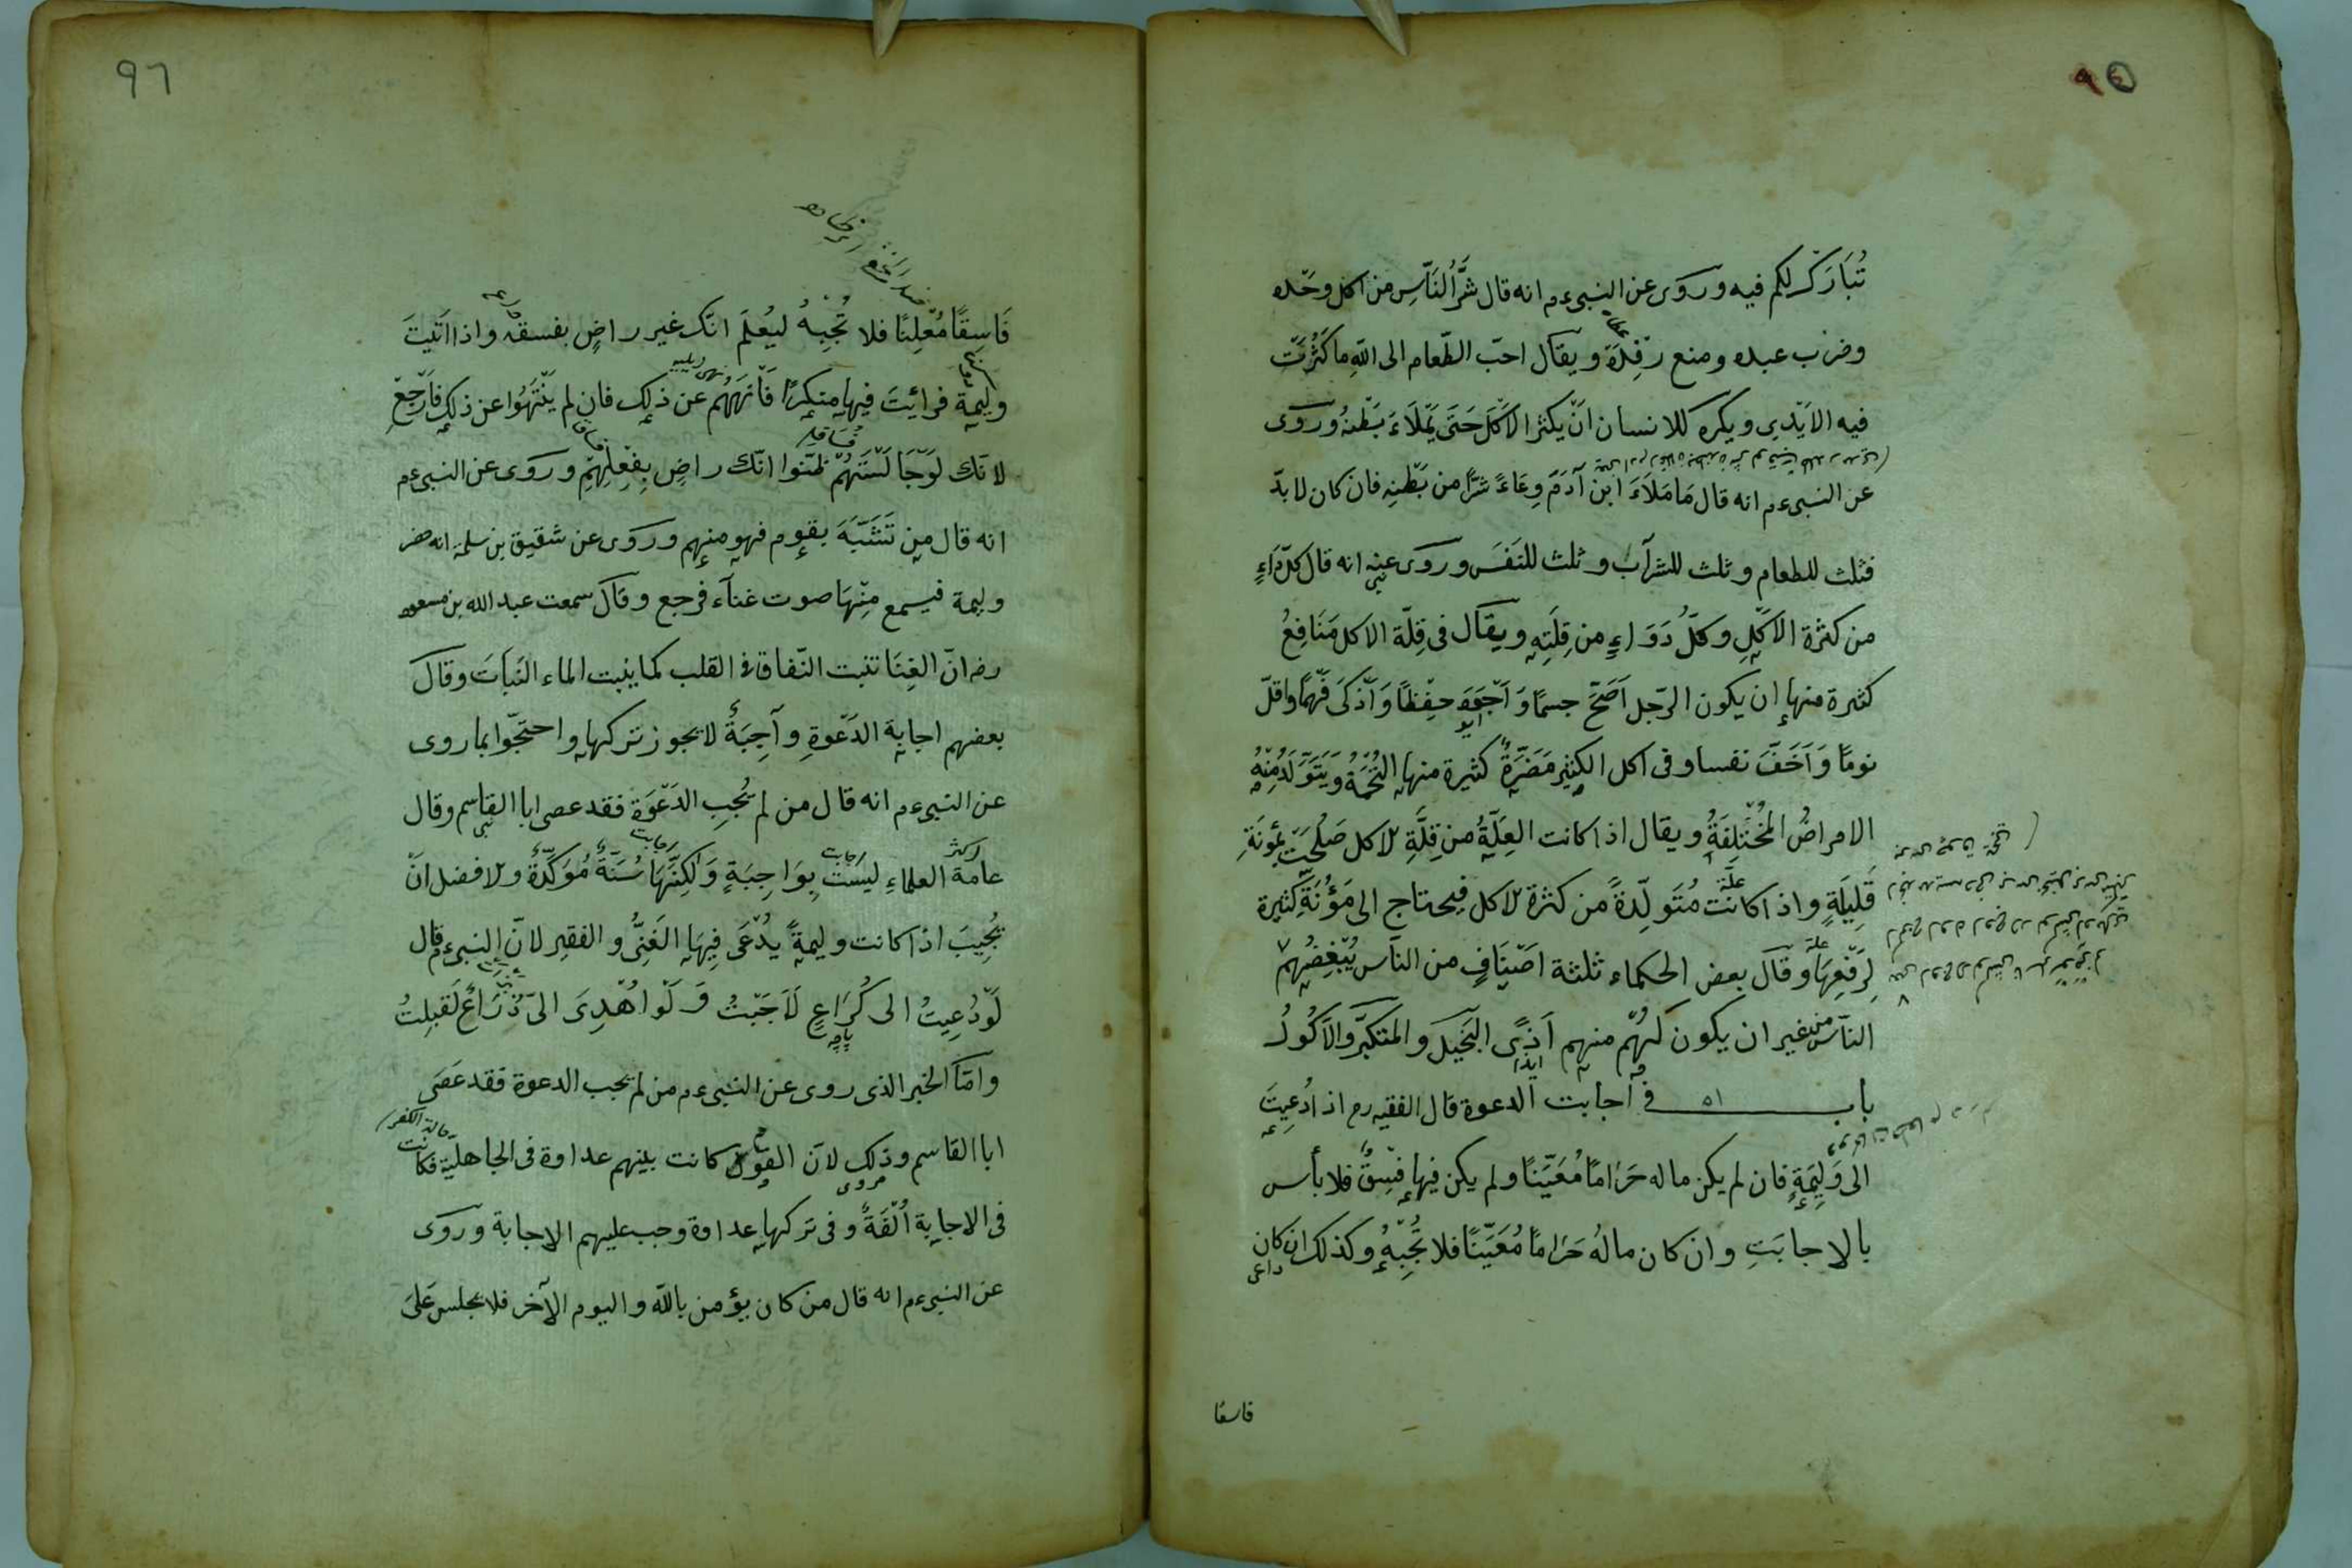 ٩٥
تُبَارَكْ لكم فيه وروى عن النبىء م انه قال شَرُّ النَّاسِ من اكل وحْده
وضرب عبده ومنع رِفْدَهُ ويقال احبّ الطّعام الى اللّه ما كَثُرَتْ
فيه الاَيْدِى ويكره للانسان اَنْ يكثر الاَكْلَ حَتَّى يَمْلَاءَ بَطْنَهُ وروى
عن النبىء م انه قال مَا مَلَاءَ ابن آدَمَ وِعَاءً شَرًّا من بَطْنِه فان كان لا بدّ
فثلث للطعام وثلث للشرآب وثلث للنَفَس وروى عنه انه قال كلّ دَاءٍ
من كثرة الاَكْلِ وكلُّ دَوَاءٍ من قِلَّتِهِ ويقال فى قِلّة الاكل مَنَافِعُ
كثيرة منها ان يكون الرّجل اَصَحَّ جسمًا وَاَجْوَدَ حِفْظًا وَاَذْكَى فَهْمًا واقلّ
نومًا وَاَخَفَّ نفسا وفى اكل الكثير مَضَرَّةٌ كثيرة منها التُّخَمَةُ وَيَتَوَلَّدُ مِنْهُ
الامراضُ المُخْتَلِفَةُ ويقال اذا كانت العِلّةُ من قِلَّةِ الاكل صَلُحَتْ بِمُؤنَةٍ
قَلِيلَةٍ واذا كانت مُتَوَلِّدَةً من كثرة الاكل فيحتاج الى مَؤُنَةٍ كثيرة
لِرَفْعِهَا وقال بعض الحكماء ثلثة اَصْنَافٍ من النّاس يُبْغِضُهُم
النّاس من غير ان يكون لَهُم منهم اَذًى البَخِيل والمتكبّر والاَكُولُ
باب ٥١ فى اجابت الدعوة قال الفقيه رح اذا دُعِيتَ
الى وَلِيمَةٍ فان لم يكن ماله حَرَامًا مُعَيَّنًا ولم يكن فيها فِسْقٌ فلا بأس
بالاجابَتِ وان كان مالُهُ حَرَامًا مُعَيَّنًا فلا تُجِبْهُ وكذلك ان كان
داعى
فاسقا
٩٦
فَاسِقًا مُعْلِنًا فلا تُجِبْهُ ليُعْلَمَ انّك غير راضٍ بفسقه واذا اَتَيْتَ
وليمة فرائيتَ فيها منكرًا فَاْنْهَهُم عن ذلك فان لم يَنْتَهُوا عن ذلك فَارْجِعْ
لانّك لَوْ جَالَسْتَهُمْ ظنّوا انّك راضٍ بِفِعْلِهِمْ وروى عن النبىء م
انه قال من تَشَبَّهَ بقوم فهو منهم وروى عن شقيق بن سلمة انه حضر
وليمة فيسمع مِنْهَا صوت غنآء فرجع وقال سمعت عبد الله بن مسعود
رض انّ الغِنَا تنبت النّفاق فى القلب كما ينبت الماء النَبَاتَ وقال
بعضهم اجابة الدَعْوَةِ وآجِبَةٌ لا يجوز تركها واحتجّوا بما روى
عن النبىء م انه قال من لم يُجِبِ الدَعْوَة فقد عصى ابا القاسم وقال
عامة العلماء ليست بِوَاجِبَةٍ وَلَكِنَّهَا سُنَّةٌ مُوَكَّدَةٌ والافضل انْ
يُجِيبَ اذا كانت وليمةً يُدْعَى فِيهَا الغَنِىُّ والفقير لانّ النبىء م قال
لَوْ دُعِيتُ الى كُرَاعٍ لَاَجَبْتُ وَلَوْ اُهْدِىَ الىّ ذُرَاعٌ لَقبِلتُ
وامّا الخبر الذى روى عن النبىء م من لم يجب الدعوة فقد عَصَى
ابا القاسم وذلك لانّ القوم كانت بينهم عداوة فى الجاهليّة فكانت
فى الاجابة اُلْفَةٌ وفى تركها عداوة وجب عليهم الاجابة وروى
عن النبىء م انه قال من كان يؤمن باللّه واليوم الآخر فلا يجلس عَلَى